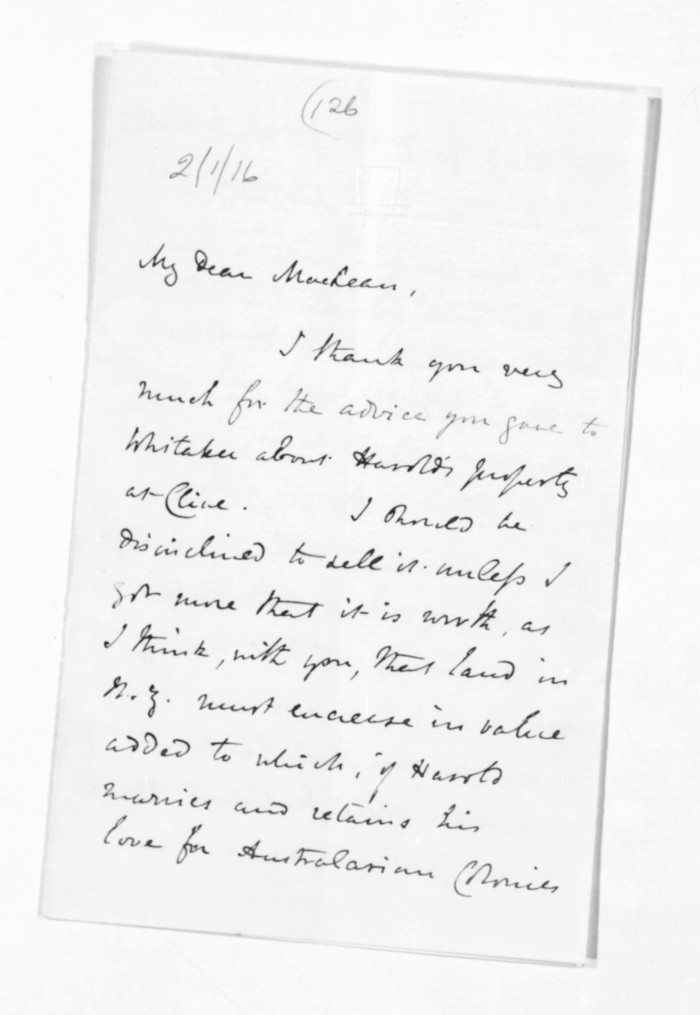 (126
2/1/16
My Dear Maclean,
I thank you very
much for the advice you gave to
Whitaker about Harold's property
at Clive. I should be
disinclined to sell it unless I
got more that it is worth, as
I think, with you, that land in
N.Z. must encrease in value
added to which, if Harold
marries and retains his
love for Australasian Colonies